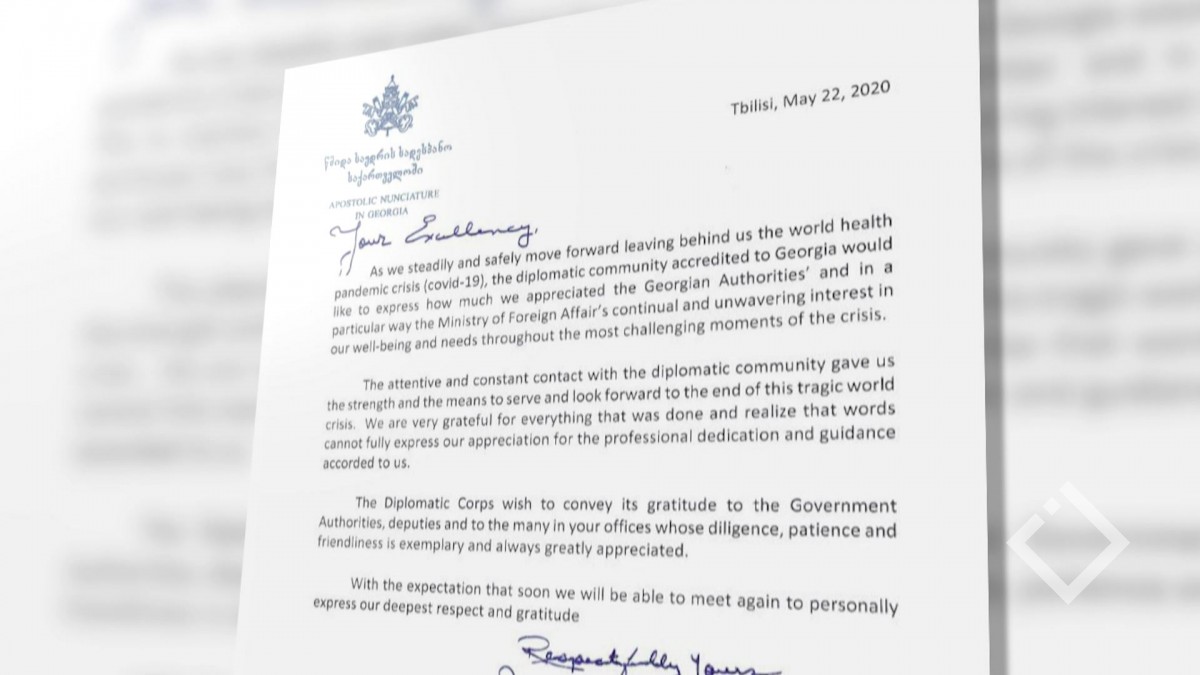 Tbilisi, May 22, 2020
წმიდა საყდრის სადესპანო
საქართველოში
APOSTOLIC NUNCIATURE
IN GEORGIA
Your Excellency,
As we steadily and safely move forward leaving behind us the world health
pandemic crisis (covid-19), the diplomatic community accredited to Georgia would
like to express how much we appreciated the Georgian Authorities' and in a
particular way the Ministry of Foreign Affair's continual and unwavering interest in
our well-being and needs throughout the most challenging moments of the crisis.
The attentive and constant contact with the diplomatic community gave us
the strength and the means to serve and look forward to the end of this tragic world
crisis. We are very grateful for everything that was done and realize that words
cannot fully express our appreciation for the professional dedication and guidance
accorded to us.
The Diplomatic Corps wish to convey its gratitude to the Government
Authorities, deputies and to the many in your offices whose diligence, patience and
friendliness is exemplary and always greatly appreciated.
With the expectation that soon we will be able to meet again to personally
express our deepest respect and gratitude
Respectfully Yours